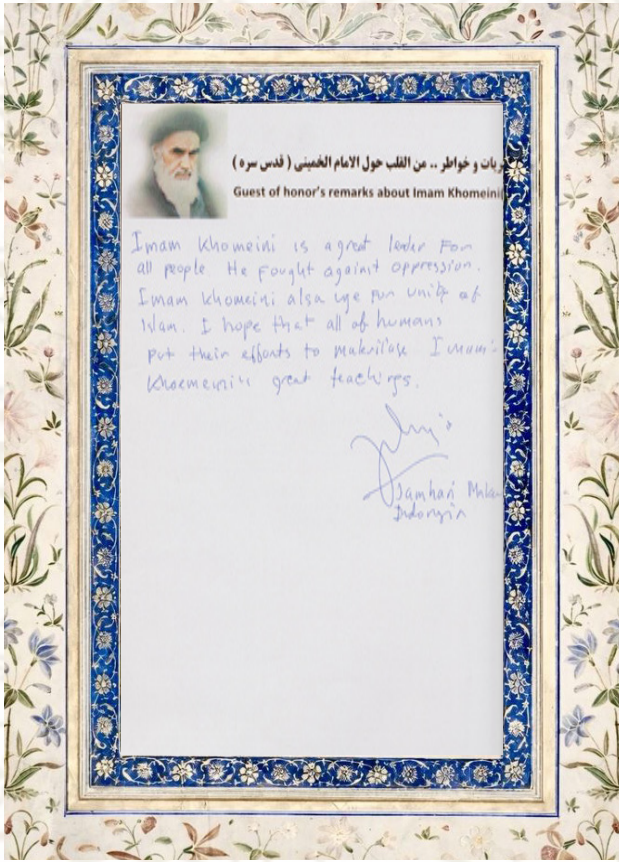 ريات و خواطر .. من القلب حول الامام الخميني ( قدس سره )
Guest of honor's remarks about Imam Khomeini(
Imam Khomeini is a great leader For
all people. He Fought against oppression.
Imam Khomeini also for unity of
Islam. I hope that all of humans
put their efforts to Imam's
great teachings.
Jamhari
Indonesia